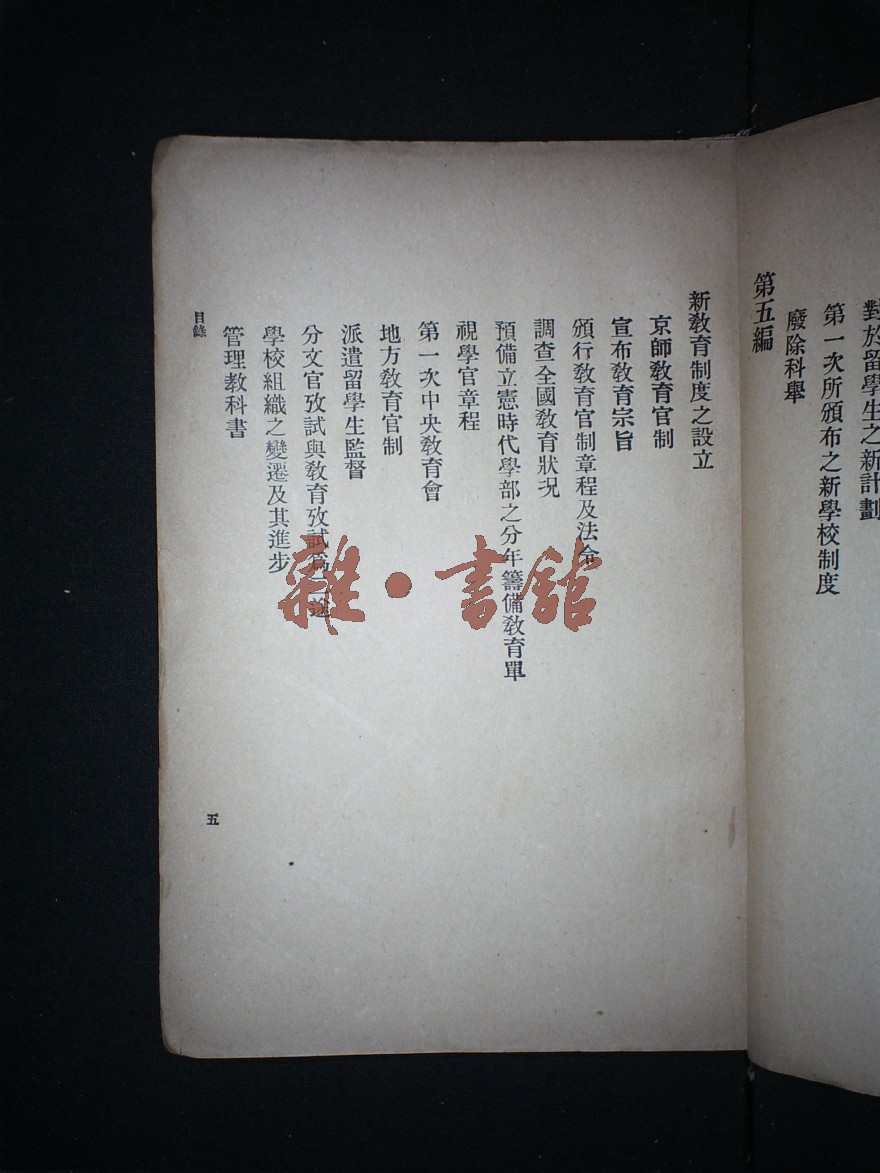 對於留學生之新計劃
第一次所頒布之新學校制度
廢除科舉
第五編
新教育制度之設立
京師教育官制
宣布教育宗旨
頒行教育官制章程及法令
調查全國教育狀況
預備立憲時代學部之分年籌備教育單
視學官章程
第一次中央教育會
地方教育官制
派遣留學生監督
分文官攷試與教育攷試爲二途
學校組織之變遷及其進步
管理教科書
目錄
五
雜·書館